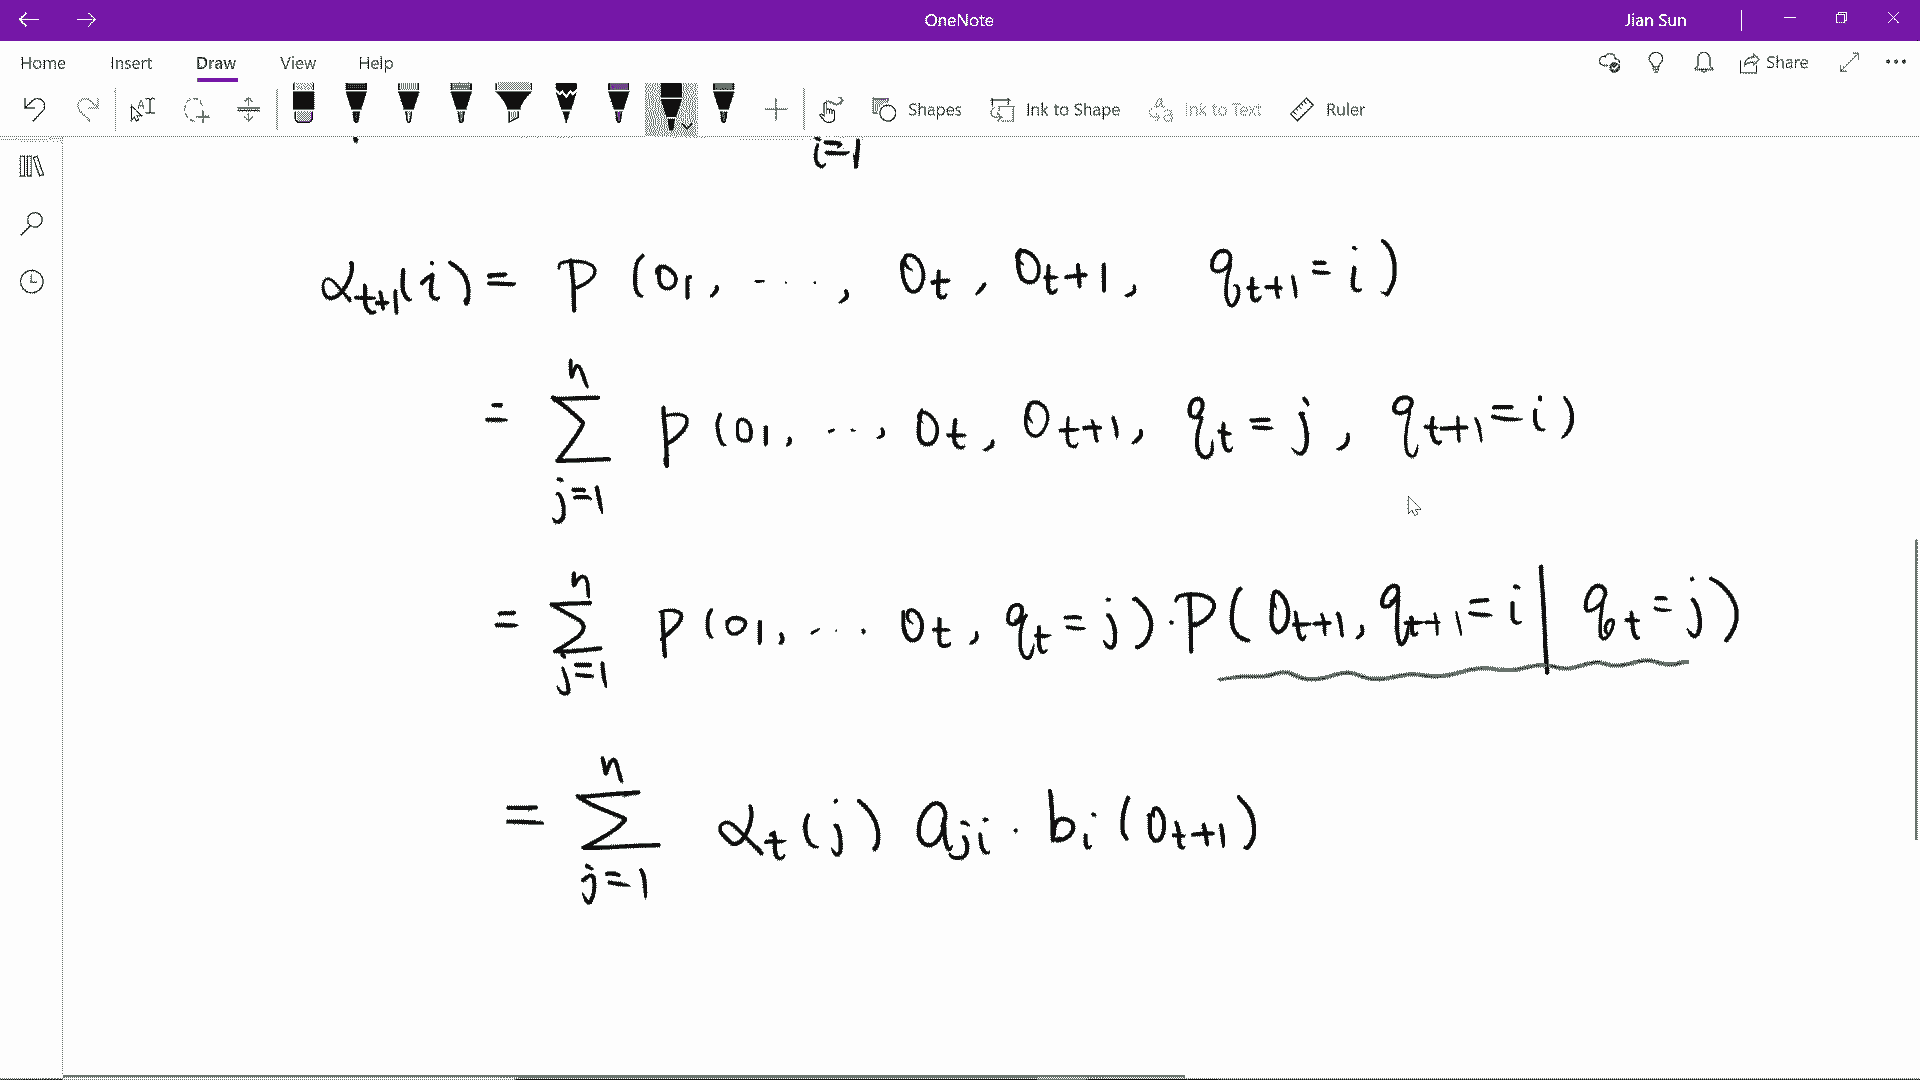 OneNote
Jian Sun
Home Insert Draw View Help
Share
Shapes Ink to Shape Ink to Text Ruler
i=1
α_{t+1}(i) = P (O_1, ..., O_t, O_{t+1}, q_{t+1} = i)
= \sum_{j=1}^{n} P (O_1, .., O_t, O_{t+1}, q_t = j, q_{t+1} = i)
= \sum_{j=1}^{n} P (O_1, ... O_t, q_t = j) · P( O_{t+1}, q_{t+1} = i | q_t = j)
= \sum_{j=1}^{n} α_t (j) a_{ji} · b_i (O_{t+1})